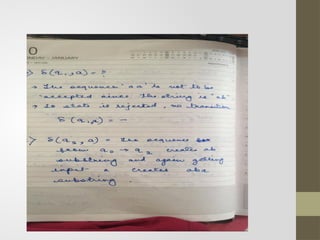 MONDAY - JANUARY
δ(q₁, a) = ?
→ The sequence 'aa' is not to be
accepted since the string is 'ab'
→ So state is rejected, no transition
δ(q₁, a) = —
δ(q₂, a) = The sequence
from q₀ → q₂ creates ab
substring and again getting
input a creates aba
substring.